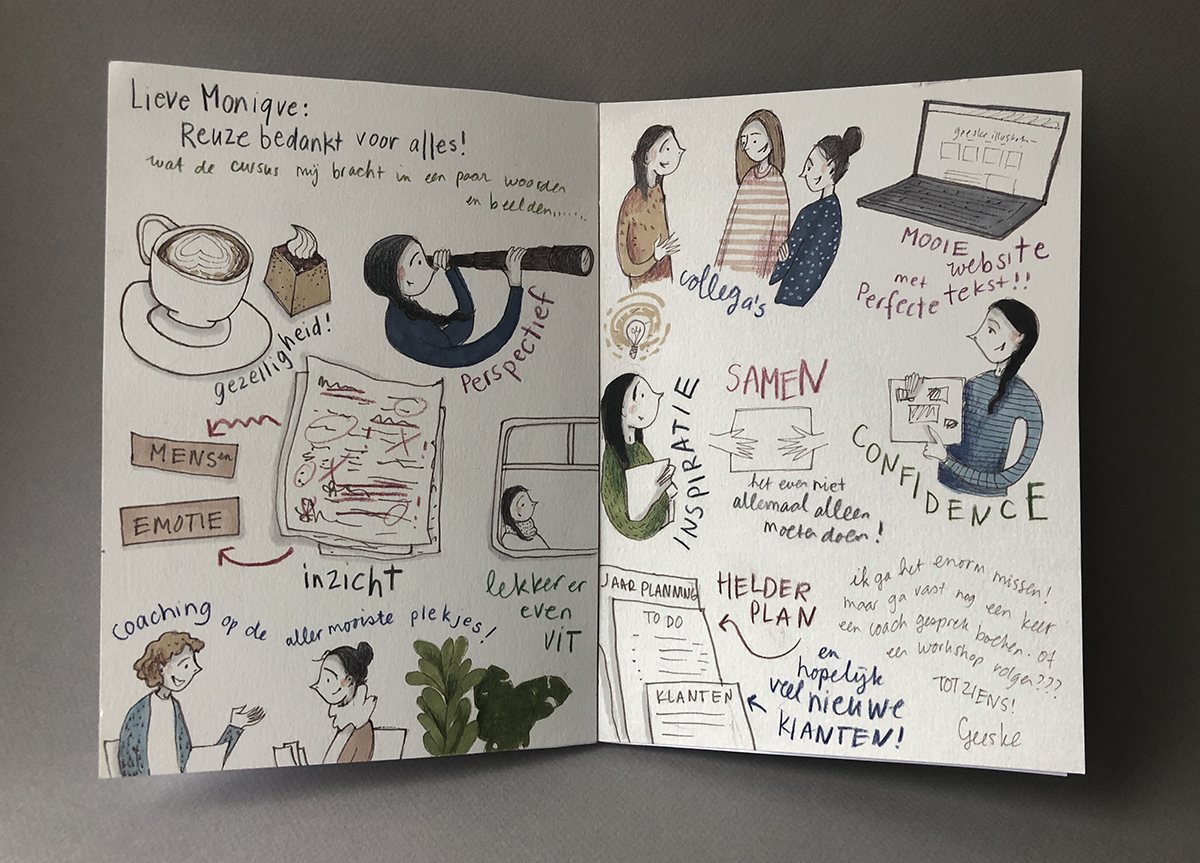 Lieve Monique:
Reuze bedankt voor alles!
wat de cursus mij bracht in een paar woorden
en beelden......
gezelligheid!
Perspectief
MENSen
EMOTIE
inzicht
lekker er
even
UIT
coaching op de aller mooiste plekjes!
collega's
geeske illustration
MOOIE
website
met
Perfecte tekst!!
INSPIRATIE
SAMEN
het even niet
allemaal alleen
moeten doen!
CONFIDENCE
JAAR PLANNING
TO DO
KLANTEN
HELDER
PLAN
en
hopelijk
veel nieuwe
KLANTEN!
ik ga het enorm missen!
maar ga vast nog een keer
een coach gesprek boeken. of
een workshop volgen???
TOT ZIENS!
Geeske